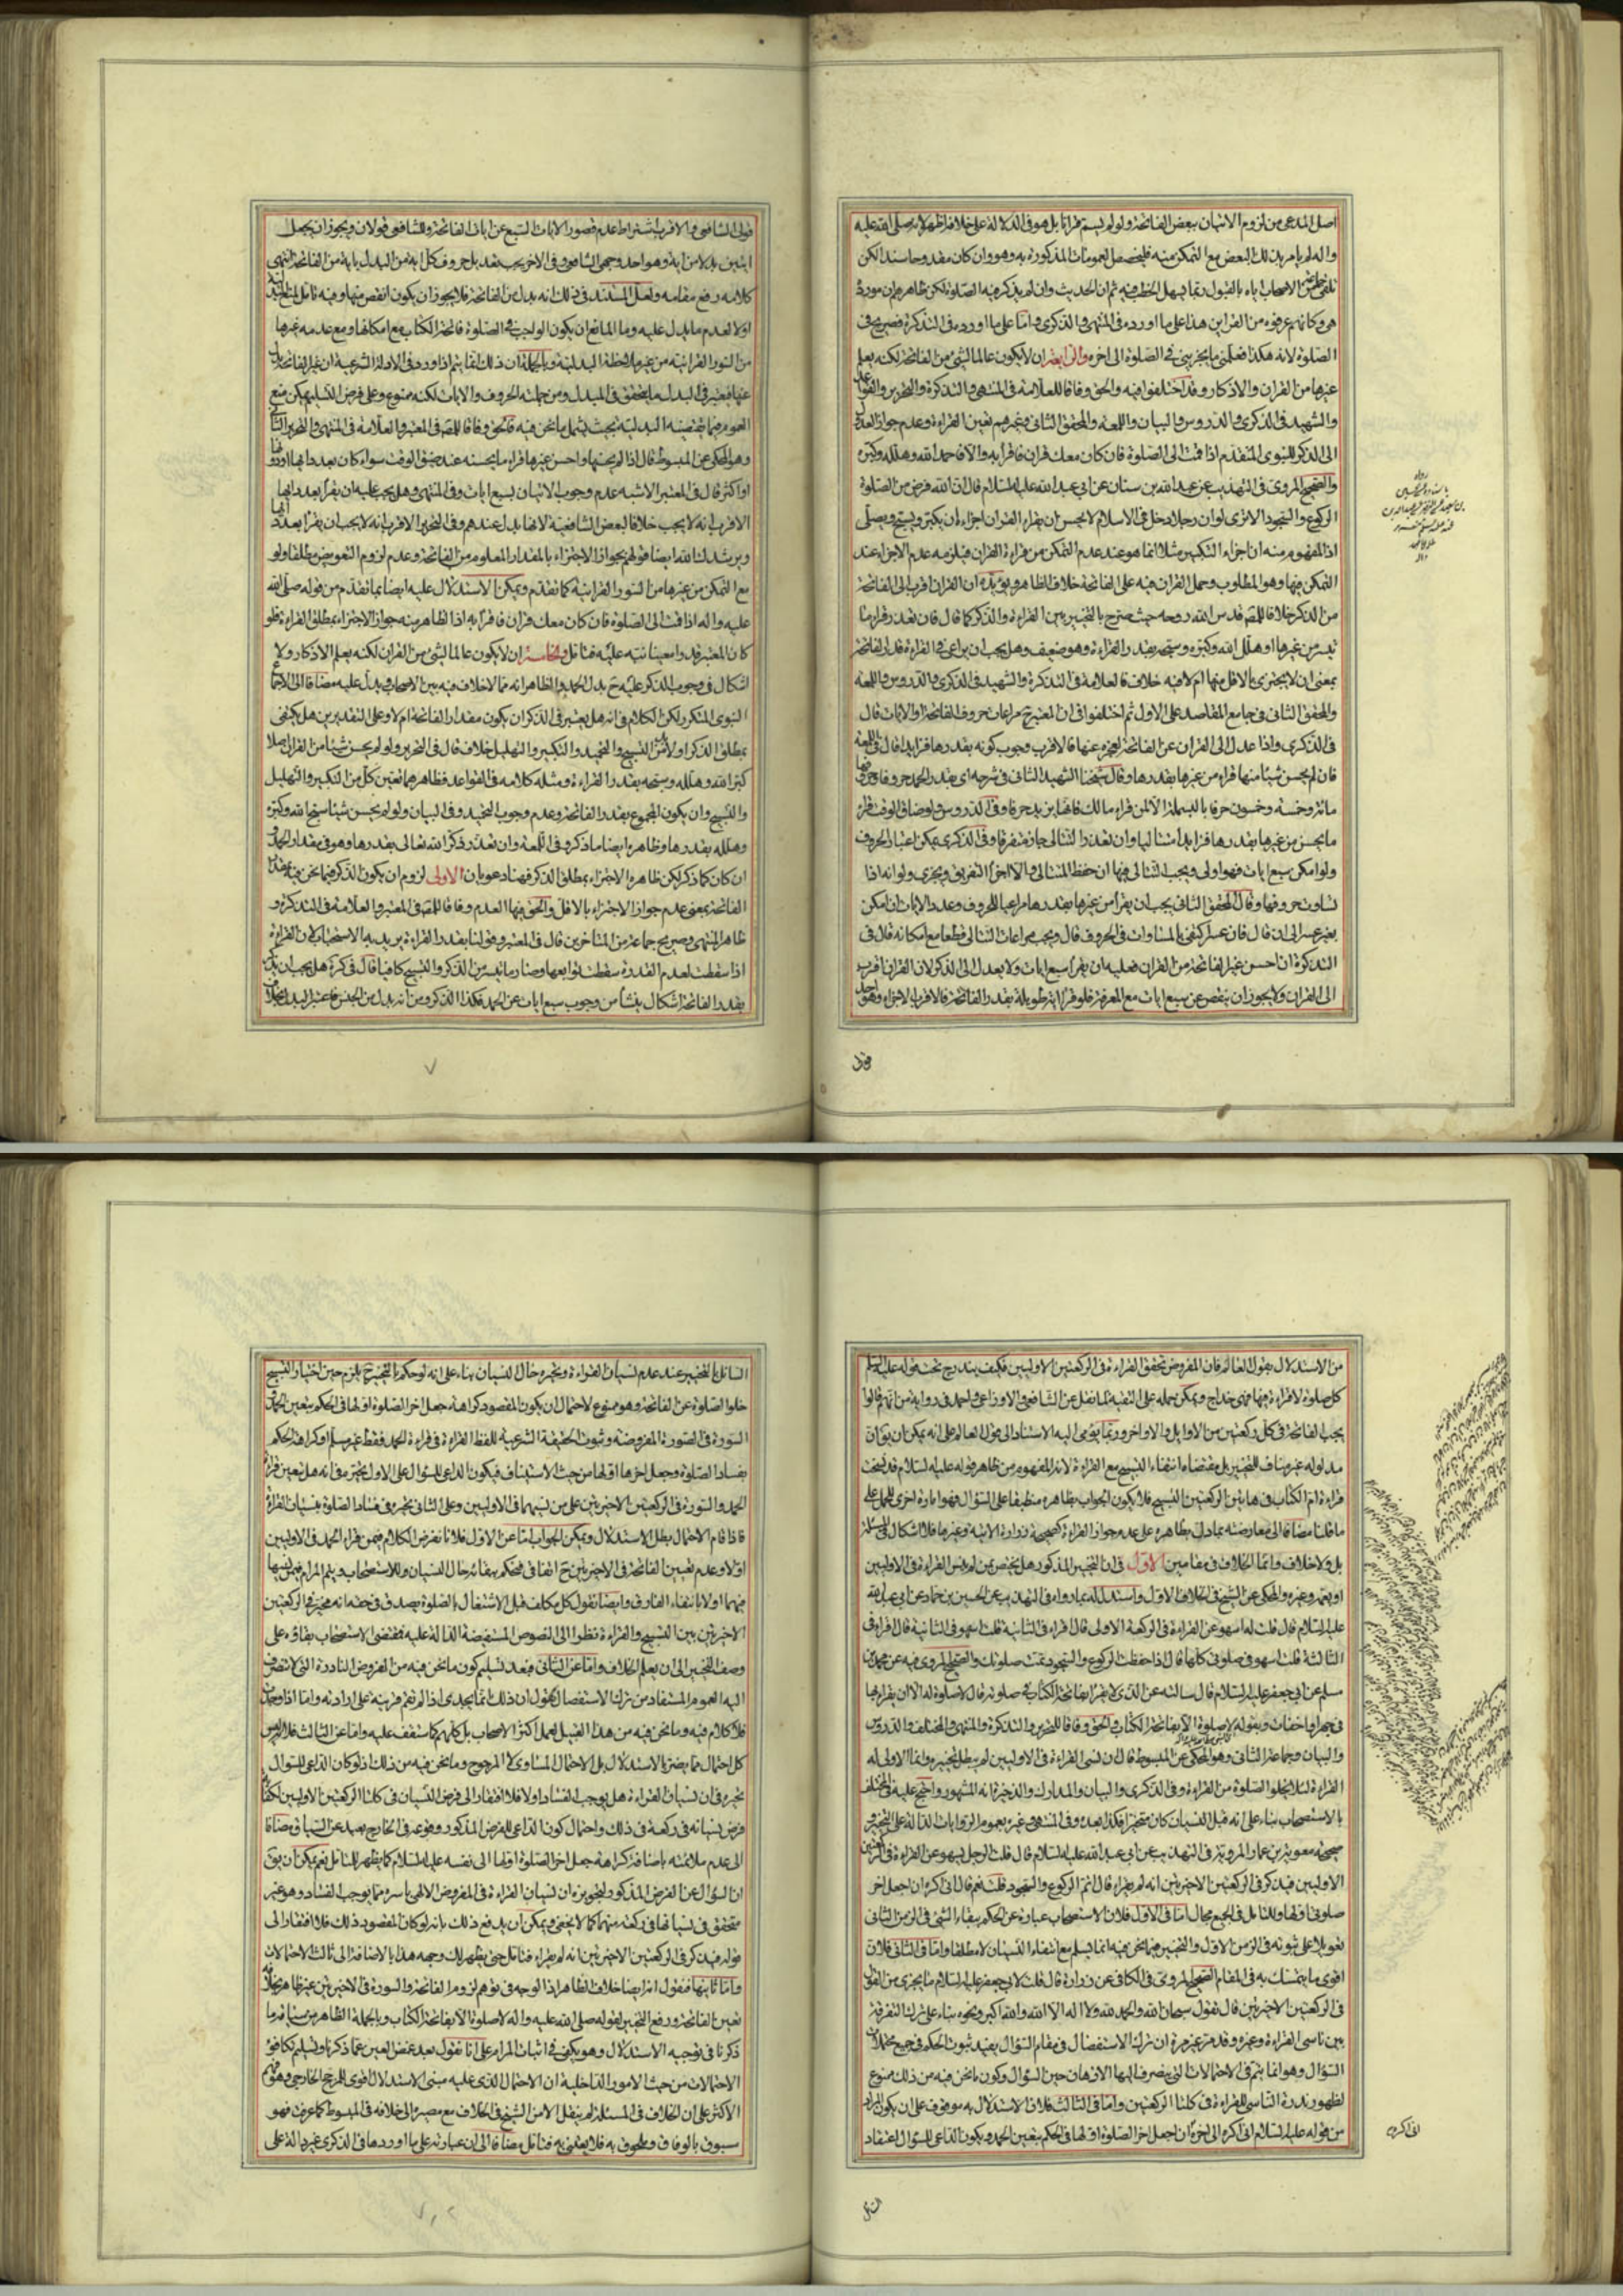 اصل المدعى من لزوم الاتيان ببعض الفاتحة ولو لم يسم قرانا بل هو فى الدلالة على خلافه اظهر لانه صلى الله عليه
واله لم يامر بذلك البعض مع التمكن منه فيخصص العمومات المذكورة به وهو وان كان مقدوحا سندا لكن
تلقى الاصحاب اياه بالقبول ربما يسهل الخطب فيه ثم ان الحديث وان لم يذكر فيه الصلوة لكن ظاهرهم ان مورده
هى وكانهم عرفوه من القراين هذا على ما اورده فى المنتهى والذكرى واما على ما اورده فى التذكرة فصريح فى
الصلوة لانه هكذا فعلمنى ما يجزينى فى الصلوة الى اخره والرابعة ان لا يكون عالما بشئ من الفاتحة لكنه يعلم
غيرها من القران والاذكار وقد اختلفوا فيه والحق وفاقا للعلامة فى المنتهى والتذكرة والتحرير والقواعد
والشهيد فى الذكرى والدروس والبيان واللمعة والمحقق الثانى وغيرهم تعين القراءة وعدم جواز العدول
الى الذكر للنبوى المتقدم اذا قمت الى الصلوة فان كان معك قران فاقرا به والا فاحمد الله وهلله وكبره
والصحيح المروى فى التهذيب عن عبد الله بن سنان عن ابى عبد الله عليه السلام قال ان الله فرض من الصلوة
الركوع والسجود الا ترى لو ان رجلا دخل فى الاسلام لا يحسن ان يقراء القران اجزاه ان يكبر ويسبح ويصلى
اذ المفهوم منه ان اجزاء التكبير مثلا انما هو عند عدم التمكن من قراءة القران فيلزمه عدم الاجزاء عند
التمكن منها وهو المطلوب وحمل القران فيه على الفاتحة خلاف الظاهر ويؤيده ان القران اقرب الى الفاتحة
من الذكر خلافا للمص قدس الله روحه حيث صرح بالتخيير بين القراءة والذكر كما قال فان تعذر قرا ما
تيسر من غيرها او هلل الله وكبره وسبحه بقدر القراءة وهو ضعيف وهل يجب ان يراعى فى القراءة قدر الفاتحة
بمعنى ان لا يجتزى بالاقل منها ام لا فيه خلاف فالعلامة فى التذكرة والشهيد فى الذكرى والدروس واللمعة
والمحقق الثانى فى جامع المقاصد على الاول ثم اختلفوا فى ان المعتبر ح مراعات حروف الفاتحة او الايات قال
فى الذكرى واذا عدل الى القران عن الفاتحة لعجزه عنها فالاقرب وجوب كونه بقدرها فزايدا قال فى اللمعة
فان لم يحسن شيئا منها قراء من غيرها بقدرها وقال شيخنا الشهيد الثانى فى شرحه اى بقدر الحمد حروفا وحروفها
مائة وخمسة وخمسون حرفا بالبسملة الا لمن قراء مالك فانها يزيد حرفا وفى الدروس ولو ضاق الوقت قراء
ما يحسن من غيرها بقدرها فزايدا متتاليا وان تعذر التتالى جاز متفرقا وفى الذكرى يمكن اعتبار الحروف
ولو امكن سبع ايات فهو اولى ويجب التتالى فيها ان حفظ المتتالى والا اجزا التفريق ويجزى ولو انه اذا
تساوت حروفها وقال المحقق الثانى يجب ان يقرا من غيرها بقدرها مراعيا للحروف وعدد الايات ان امكن
بغير عسر الى ان قال فان عسر اكتفى بالمساوات فى الحروف قال ويجب مراعات التتالى قطعا مع امكانه قال فى
التذكرة ان احسن غير الفاتحة من القران فعليه ان يقرا سبع ايات ولا يعدل الى الذكر لان القران اقرب
الى القران ولا يجوز ان ينقص عن سبع ايات مع المعرفة فلو قرا اية طويلة بقدر الفاتحة فالاقرب الاجزاء وهو احد
قولى الشافعى والاقرب اشتراط عدم قصور الايات السبع عن ايات الفاتحة وللشافعى قولان ويجوز ان يجعل
ايتين بدلا من اية وهو احد وجهى الشافعى وفى الاخر يجب تعديل حروف كل اية من البدل باية من الفاتحة انتهى
كلامه رفع مقامه ولعل المستند فى ذلك انه بدل عن الفاتحة فلا يجوز ان يكون انقص منها وفيه تامل
اولا لعدم ما يدل عليه وما المانع ان يكون الواجب فى الصلوة فاتحة الكتاب مع امكانها ومع عدمه غيرها
من السور القرانية من غير ملاحظة البدلية وبالجملة ان ذلك انما يتم اذا ورد فى الادلة الشرعية ان غير الفاتحة بدل
عنها فيعتبر فى البدل ما يتحقق فى المبدل ومن جملته الحروف والايات لكنه ممنوع وعلى فرض التسليم يمكن منع
العموم فيما يقتضيه البدلية بحيث يشمل ما نحن فيه فالحق وفاقا للمص فى المعتبر والعلامة فى المنتهى والتحرير الثانى
وهو المحكى عن المبسوط قال اذا لم يحسنها واحسن غيرها قراء ما يحسنه عند ضيق الوقت سواء كان بعدد اياتها او دونها
او اكثر قال فى المعتبر الاشبه عدم وجوب الاتيان بسبع ايات وفى المنتهى وهل يجب عليه ان يقرا بعدد اياتها
الاقرب انه لا يجب خلافا لبعض الشافعية لانها بدل عندهم وفى التحرير الاقرب انه لا يجب ان يقرا بعدد اياتها
ويرشدك الله ايضا قولهم بجواز الاجتزاء بالمقدار المعلوم من الفاتحة وعدم لزوم التعويض مطلقا ولو
مع التمكن من غيرها من السور القرانية كما تقدم ويمكن الاستدلال عليه ايضا بما تقدم من قوله صلى الله
عليه واله اذا قمت الى الصلوة فان كان معك قران فاقرا به اذ الظاهر منه جواز الاجتزاء بمطلق القراءة فلو
كان المعتبر قدرا معينا نبه عليه فتامل والخامسة ان لا يكون عالما بشئ من القران لكنه يعلم الاذكار ولا
اشكال فى وجوب الذكر عليه ح بدل الحمد والظاهر انه مما لا خلاف فيه بين الاصحاب ويدل عليه مضافا الى الاجماع
النبوى المتكرر لكن الكلام فى انه هل يعتبر فى الذكر ان يكون مقدار الفاتحة ام لا وعلى التقديرين هل يكتفى
بمطلق الذكر او لا بد من التسبيح والتحميد والتكبير والتهليل خلاف قال فى التحرير ولو لم يحسن شيئا من القران اصلا
كبر الله وهلله وسبحه بقدر القراءة ومثله كلامه فى القواعد فظاهرهما تعين كل من التكبير والتهليل
والتسبيح وان يكون المجموع بقدر الفاتحة وعدم وجوب التحميد وفى البيان ولو لم يحسن شيئا سبح الله وكبره
وهلله بقدرها وظاهره ايضا ما ذكر وفى اللمعة وان تعذر ذكر الله تعالى بقدرها وهو فى مقدار الحمد
ان كان كما ذكر لكن ظاهره الاجتزاء بمطلق الذكر فهنا دعويان الاولى لزوم ان يكون الذكر فيما نحن فيه بمقدار
الفاتحة بمعنى عدم جواز الاجتزاء بالاقل والحق فيها العدم وفاقا للمص فى المعتبر والعلامة فى التذكرة و
ظاهر المنتهى وصريح جماعة من المتاخرين قال فى المعتبر وقولنا بقدر القراءة يريد به الاستحباب لان القراءة
اذا سقطت لعدم القدرة سقطت توابعها وصار ما تيسر من الذكر والتسبيح كافيا قال فى كرة هل يجب ان يكون
بقدر الفاتحة اشكال ينشا من وجوب سبع ايات عن الحمد فكذا الذكر ومن انه بدل من الجنس فاعتبر
من الاستدلال بقول الفائزة فان المفروض تحقق القراءة فى الركعتين الاوليين فكيف يندرج تحت قوله عليه السلم
كل صلوة لا قراءة فيها فهى خداج ويمكن حمله على التقية لما نقل عن الشافعى والاوزاعى واحمد فى رواية من انهم قالوا
يجب الفاتحة فى كل ركعتين من الاوايل والاواخر وربما يؤمى اليه الاستناد الى قول العالم على انه يمكن ان يق ان
مدلوله غير مناف للتخيير بل مقتضاه انتفاء التسبيح مع القراءة لان المفهوم من ظاهر قوله عليه السلام قد نسخت
قراءة ام الكتاب فى هاتين الركعتين التسبيح فلا يكون الجواب بظاهره منطبقا على السؤال فهو امارة اخرى للحمل على
ما قلنا مضافا الى معارضته بما دل بظاهره على عدم جواز القراءة كصحيحة زرارة الاتية وغيرها فلا اشكال فى المسئلة
بل ولا خلاف وانما الخلاف فى مقامين الاول فى ان التخيير المذكور هل يختص بمن لم ينس القراءة فى الاوليين
او يعمه وغيره والمحكى عن الشيخ فى الخلاف الاول واستدل له بما رواه فى التهذيب عن الحسين بن حماد عن ابى عبد الله
عليه السلام قال قلت له اسهو عن القراءة فى الركعة الاولى قال اقراء فى الثانية قلت اسهو فى الثانية قال اقراء فى
الثالثة قلت اسهو فى صلوتى كلها قال اذا حفظت الركوع والسجود تمت صلوتك والصحيح المروى فيه عن محمد بن
مسلم عن ابى جعفر عليه السلام قال سالته عن الذى لا يقرا بفاتحة الكتاب فى صلوته قال لا صلوة له الا ان يقراء بها
فى جهر او اخفات وبقوله لا صلوة الا بفاتحة الكتاب والحق وفاقا للتحرير والتذكرة والمنتهى والمختلف والدروس
والبيان وجماعة الثانى وهو المحكى عن المبسوط قال ان نسى القراءة فى الاوليين لم يبطل تخييره وانما الاولى له
القراءة لئلا يخلو الصلوة من القراءة وفى الذكرى والبيان والمدارك والذخيرة انه المشهور واحتج عليه فى المختلف
بالاستصحاب بناء على انه قبل النسيان كان متخيرا فكذا بعده وفى المنتهى وغيره بعموم الروايات الدالة على التخيير و
صحيحة معوية بن عمار المروية فى التهذيب عن ابى عبد الله عليه السلام قال قلت الرجل يسهو عن القراءة فى الركعتين
الاوليين فيذكر فى الركعتين الاخيرتين انه لم يقراء قال اتم الركوع والسجود قلت نعم قال انى اكره ان اجعل اخر
صلوتى اولها وللتامل فى الجميع مجال اما فى الاول فلان الاستصحاب عبارة عن الحكم ببقاء الشئ فى الزمن الثانى
تعويلا على ثبوته فى الزمن الاول والتخيير فيما نحن فيه انما يسلم مع انتفاء النسيان لا مطلقا واما فى الثانى فلان
اقوى ما يتمسك به فى المقام الصحيح المروى فى الكافى عن زرارة قال قلت لابى جعفر عليه السلام ما يجزى من القول
فى الركعتين الاخيرتين قال تقول سبحان الله والحمد لله ولا اله الا الله والله اكبر ونحوه بناء على ترك التفرقة
بين ناسى القراءة وغيره وقد مر غير مرة ان ترك الاستفصال فى مقام السؤال يفيد ثبوت الحكم فى جميع محتملات
السؤال وهو انما يتم فى الاحتمالات التى ينصرف اليها الاذهان حين السؤال وكون ما نحن فيه من ذلك ممنوع
لظهور ندرة الناسى للقراءة فى كلتا الركعتين واما فى الثالث فلان الاستدلال به موقوف على ان يكون المراد
من قوله عليه السلام انى اكره الى اخره ان اجعل اخر الصلوة اولها فى الحكم بتعين الحمد ويكون الداعى للسؤال اعتقاد
السائل بالتخيير عند عدم نسيان القراءة وتحيره حال النسيان بناء على انه لو حكم بالتخيير ح يلزم حين اختيار التسبيح
خلوا الصلوة عن الفاتحة وهو ممنوع لاحتمال ان يكون المقصود كراهة جعل اخر الصلوة اولها فى الحكم بتعين الحمد و
السورة فى الصورة المفروضة وثبوت الحقيقة الشرعية للفظ القراءة فى قراءة الحمد فقط غير مسلم او كراهة الحكم
بفساد الصلوة وجعل اخرها اولها من حيث الاستيناف فيكون الداعى للسؤال على الاول تحيره فى انه هل تعين قراءة
الحمد والسورة فى الركعتين الاخيرتين على من نسيهما فى الاوليين وعلى الثانى تحيره فى فساد الصلوة بنسيان القراءة
فاذا قام الاحتمال بطل الاستدلال ويمكن الجواب اما عن الاول فلانا نفرض الكلام فيمن قراء الحمد فى الاوليين
اولا وعدم تعيين الفاتحة فى الاخيرتين ح اتفاقى فحكم ببقائه حال النسيان وللاستصحاب ويتم المرام فيمن نسيها
فيهما اولا بانتفاء الفارق وايضا نقول كل مكلف قبل الاشتغال بالصلوة يصدق فى حقه انه مخير فى الركعتين
الاخيرتين بين التسبيح والقراءة نظرا الى النصوص المستفيضة الدالة عليه فمقتضى الاستصحاب بقاؤه على
وصف التخيير الى ان يعلم الخلاف واما عن الثانى فبعد تسليم كون ما نحن فيه من الفروض النادرة التى لا ينصرف
اليه العموم المستفاد من ترك الاستفصال نقول ان ذلك انما يجدى اذا لم تقم قرينة على ارادته واما اذا وجدت
فلا كلام فيه وما نحن فيه من هذا القبيل لعمل اكثر الاصحاب بل كلهم كما ستقف عليه واما عن الثالث فلانه ليس
كل احتمال مما يضر بالاستدلال بل الاحتمال المساوى لا المرجوح وما نحن فيه من ذلك اذ لو كان الداعى للسؤال
تحيره فى ان نسيان القراءة هل يوجب الفساد او لا فلا افتقار الى فرض النسيان فى كلتا الركعتين الاوليين لكفاية
فرض نسيانه فى ركعة فى ذلك واحتمال كون الداعى للفرض المذكور وقوعه فى الخارج بعيد عن السياق مضافا
الى عدم ملائمته باضافة كراهة جعل اخر الصلوة اولها الى نفسه عليه السلام كما يظهر للمتامل نعم يمكن ان يق
ان السؤال عن الفرض المذكور لتجويزه ان نسيان القراءة فى المفروض الالهى باسره مما يوجب الفساد وهو غير
متحقق فى نسيانها فى ركعة منهما كما لا يخفى ويمكن ان يدفع ذلك بانه لو كان المقصود ذلك فلا افتقار الى
قوله فيذكر فى الركعتين الاخيرتين انه لم يقراء فتامل حتى يظهر لك وجهه هذا بالاضافة الى ثالث الاحتمالات
واما ثانيها فنقول انه ايضا خلاف الظاهر اذ لا وجه فى توهم لزوم الفاتحة والسورة فى الاخيرتين غير ظاهر بخلاف
تعين الفاتحة ورفع التخيير لقوله صلى الله عليه واله لا صلوة الا بفاتحة الكتاب وبالجملة الظاهر من سياقه ما
ذكرنا فى توجيه الاستدلال وهو يكفى فى اثبات المرام على انا نقول بعد غض العين عما ذكرنا وتسليم تكافؤ
الاحتمالات من حيث الامور الداخلية ان الاحتمال الذى عليه مبنى الاستدلال اقوى للمرجح الخارجى وهو فهم
الاكثر على ان الخلاف فى المسئلة لم ينقل الا من الشيخ فى الخلاف مع مصيره الى خلافه فى المبسوط كما عرفت فهو
مسبوق بالوفاق وملحوق به فلا يعتنى به فتامل مضافا الى ان عبارته على ما اوردها فى الذكرى غير دالة على